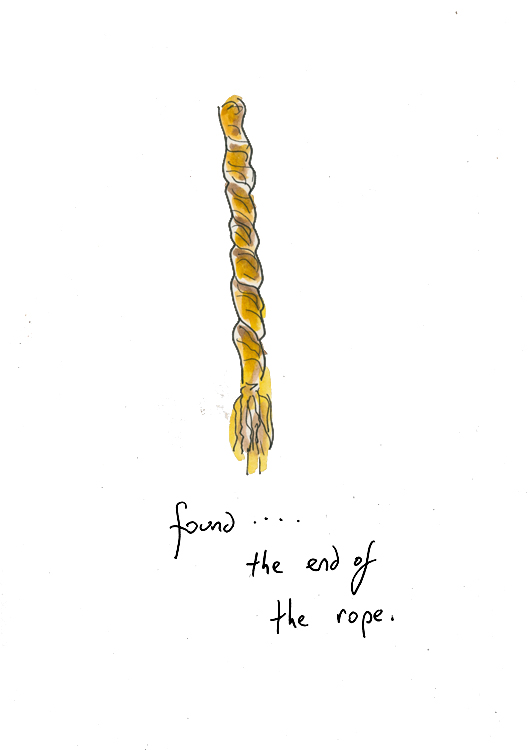 found ....
the end of
the rope.